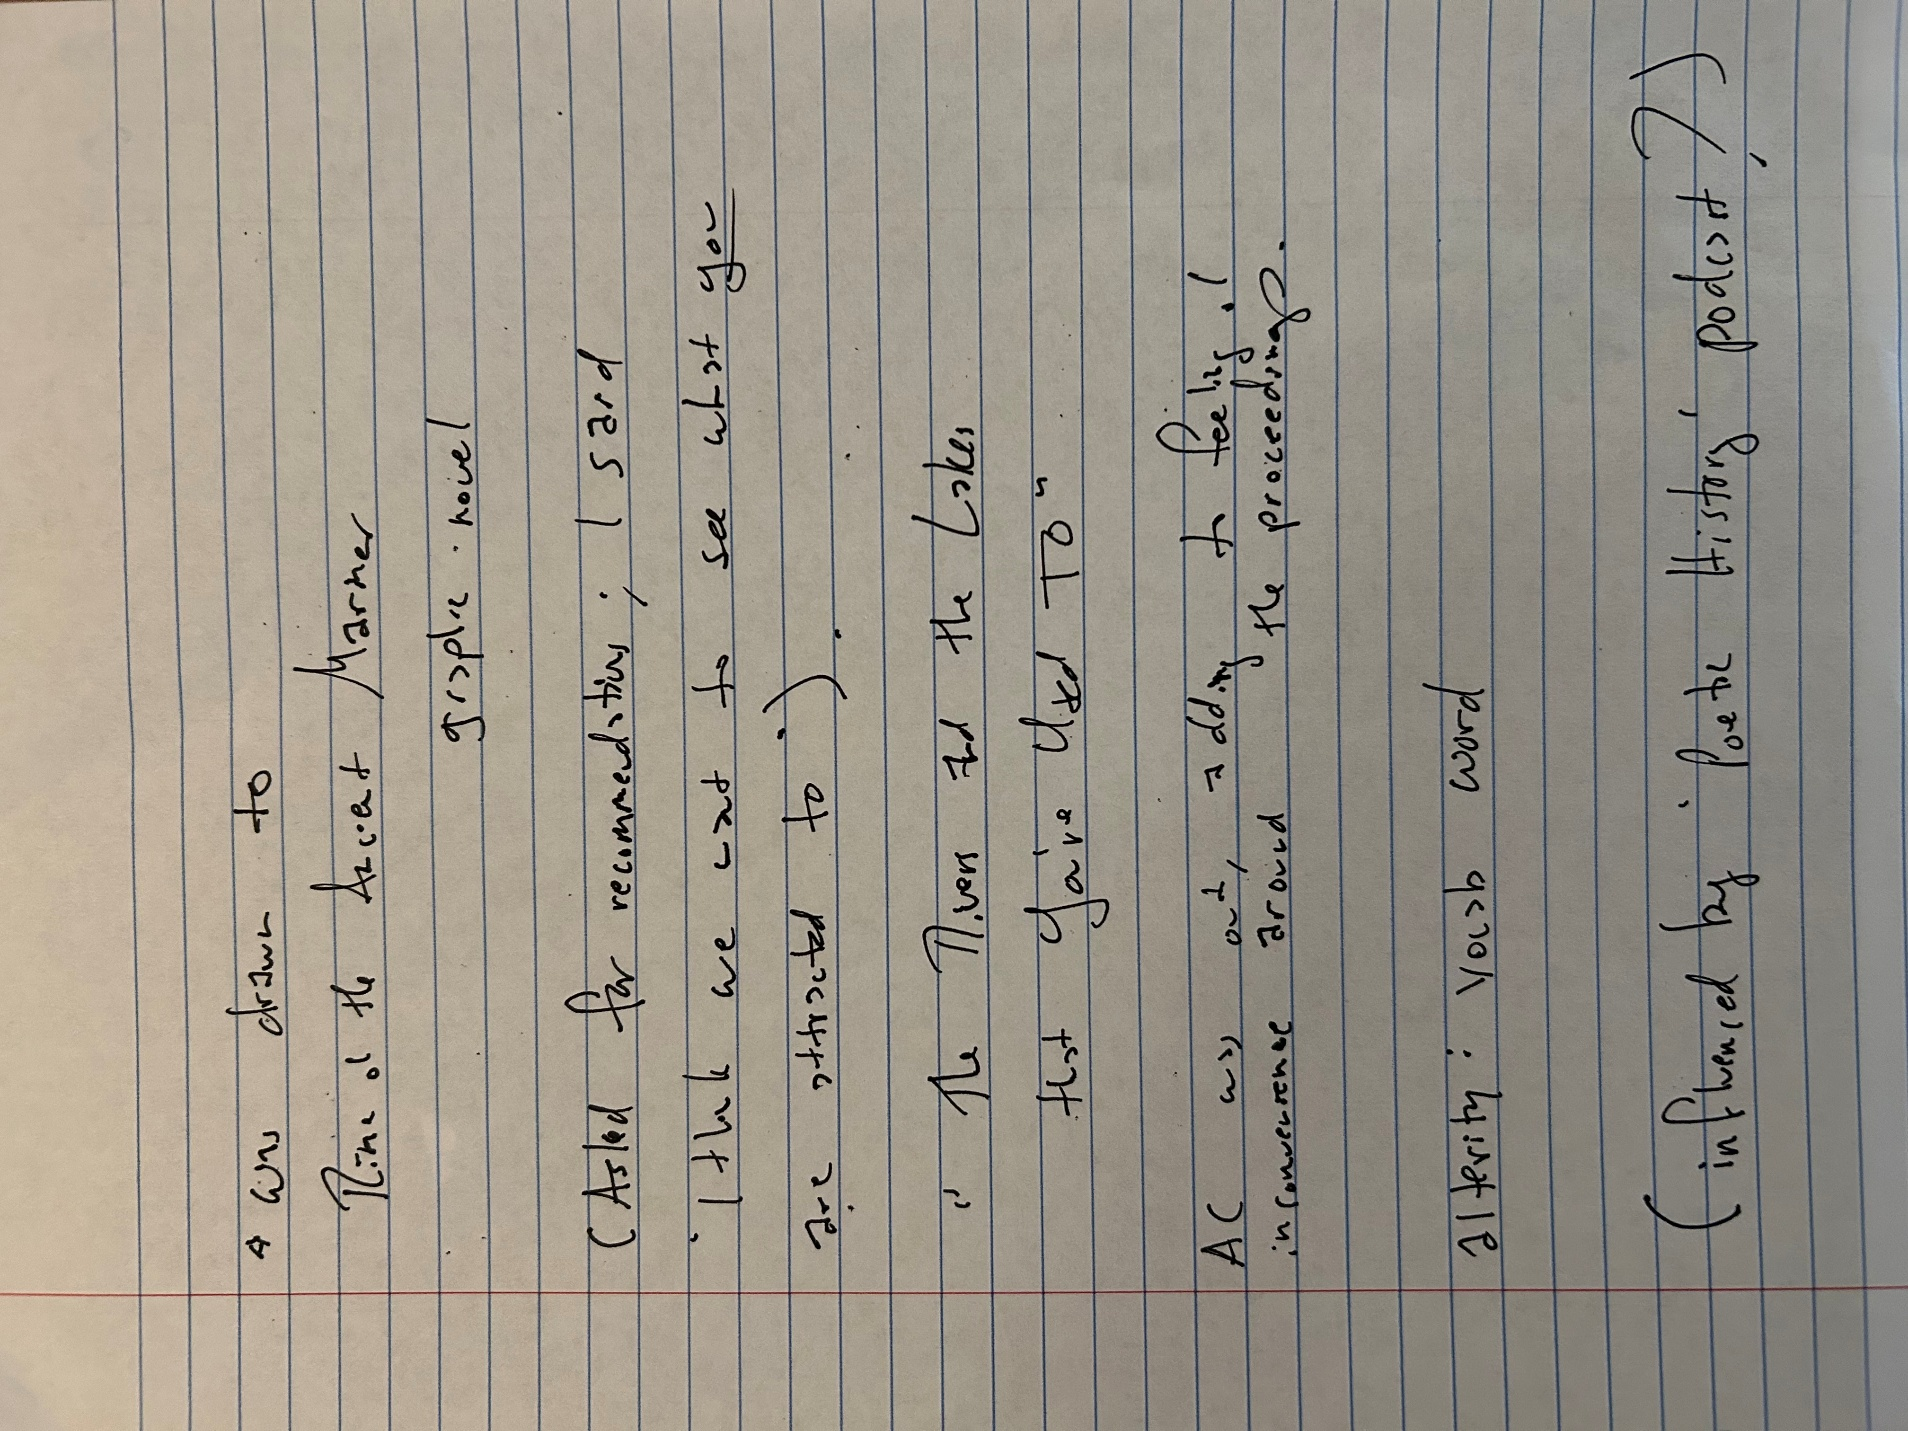 * was drawn to
Rime of the Ancient Mariner
graphic novel
(Asked for recommendations; I said
'I think we want to see what you
are attracted to').
"The Rivers and the Lakes
that You're Used To"
AC was out, adding to feeling of
inconvenience around the proceedings.
alterity: vocab word
(influenced by 'Poetic History' podcast?)